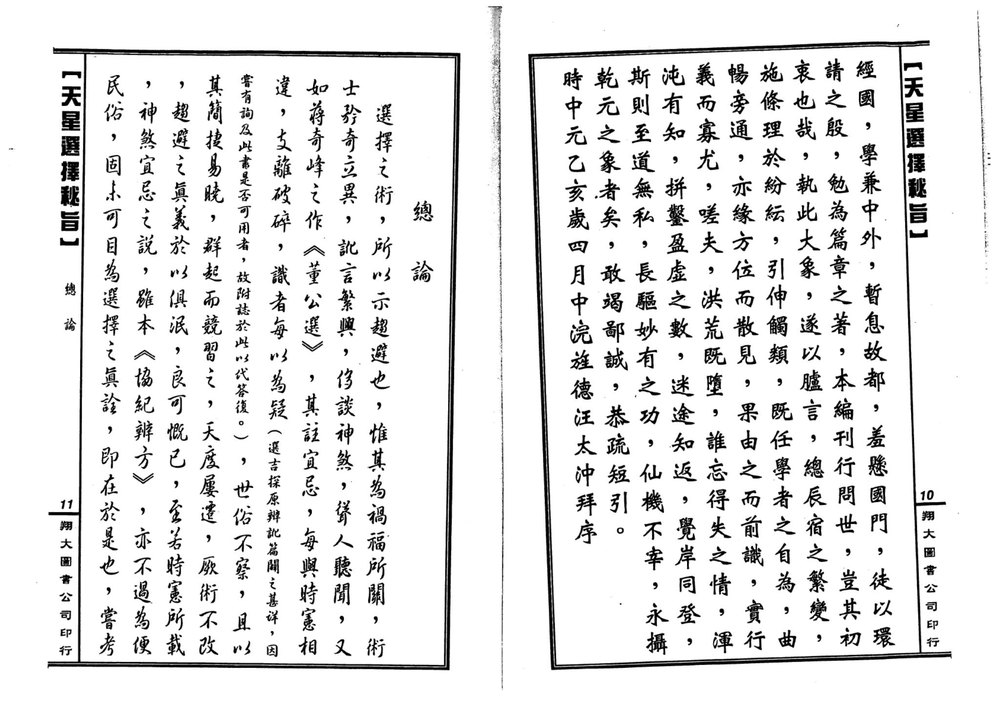 【天星選擇秘旨】
10
翔大圖書公司印行
經國，學兼中外，暫息故都，羞懸國門，徒以環
請之殷，勉為篇章之著，本編刊行問世，豈其初
衷也哉，執此大象，遂以臚言，總辰宿之繁變，
施條理於紛紜，引伸觸類，既任學者之自為，曲
暢旁通，亦緣方位而散見，果由之而前識，實行
義而寡尤，嗟夫，洪荒既墮，誰忘得失之情，渾
沌有知，拼鑿盈虛之數，迷途知返，覺岸同登，
斯則至道無私，長驅妙有之功，仙機不宰，永攝
乾元之象者矣，敢竭鄙誠，恭疏短引。
時中元乙亥歲四月中浣旌德汪太沖拜序
總論
選擇之術，所以示趨避也，惟其為禍福所關，術
士矜奇立異，訛言繁興，侈談神煞，聳人聽聞，又
如蔣奇峰之作《董公選》，其註宜忌，每與時憲相
違，支離破碎，識者每以為疑（選吉探原辨訛篇闢之甚詳，因
嘗有詢及此書是否可用者，故附誌於此以代答復。），世俗不察，且以
其簡捷易曉，群起而競習之，天度屢遷，厥術不改
，趨避之真義於以俱泯，良可慨已，至若時憲所載
，神煞宜忌之說，雖本《協紀辨方》，亦不過為便
民俗，固未可目為選擇之真詮，即在於是也，嘗考
【天星選擇秘旨】
總論
11
翔大圖書公司印行